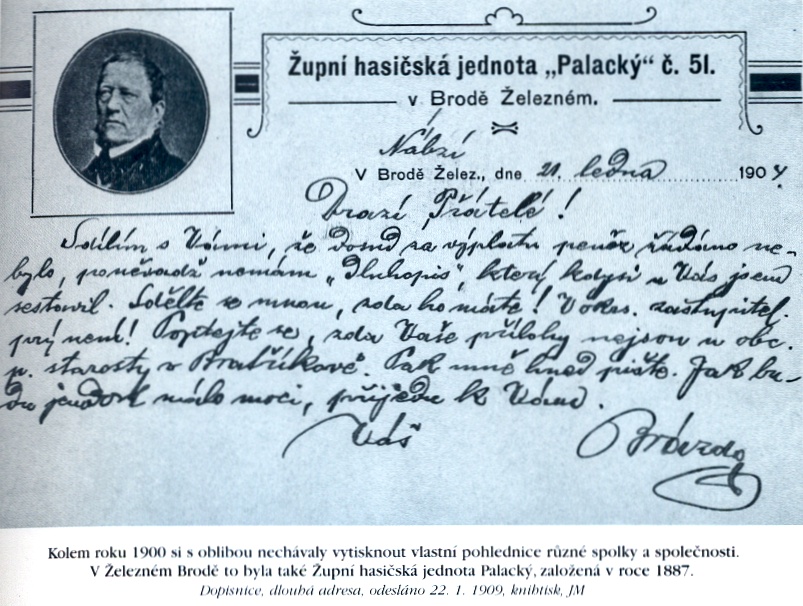 Župní hasičská jednota „Palacký“ č. 51.
v Brodě Železném.
Nábzí
V Brodě Želez., dne 21. ledna 1909
Drazí Přátelé!
Sdílím s Vámi, že dosud za výplatu peněz žádáno ne-
bylo, poněvadž nemám „Dluhopis“, který kdysi u Vás jsem
sestavil. Sdělte se mnou, zda ho máte! V okrs. zastupitel.
prý není! Poptejte se, zda Vaše přílohy nejsou u obc.
p. starosty v Bratříkově. Pak mně hned pište. Jak bu-
du jenom málo moci, přijedu k Vám.
Váš
Kolem roku 1900 si s oblibou nechávaly vytisknout vlastní pohlednice různé spolky a společnosti.
V Železném Brodě to byla také Župní hasičská jednota Palacký, založená v roce 1887.
Dopisnice, dlouhá adresa, odesláno 22. 1. 1909, knihtisk, JM